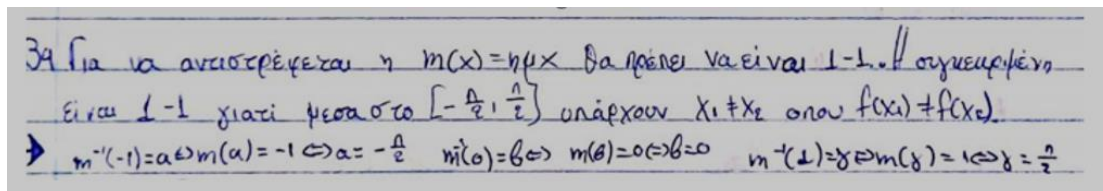 39 Για να αντιστρέφεται η m(x)=ημx θα πρέπει να είναι 1-1. Η συγκεκριμένη
είναι 1-1 γιατί μεσα στο [-π/2, π/2] υπάρχουν x₁≠x₂ οπου f(x₁)≠f(x₂).
→ m⁻¹(-1)=α⇔m(α)=-1⇔α=-π/2 m⁻¹(0)=β⇔ m(β)=0⇔β=0 m⁻¹(1)=γ⇔m(γ)=1⇔γ=π/2